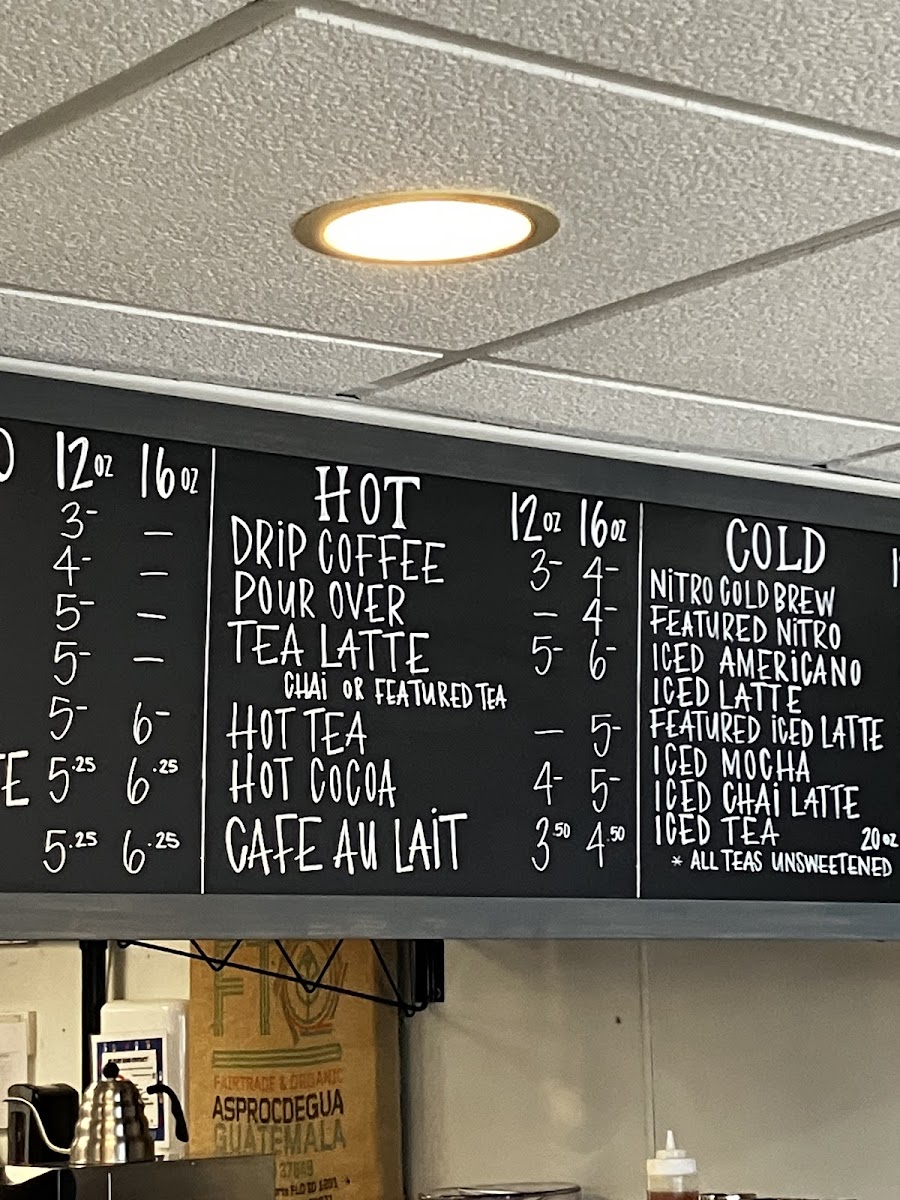 12oz 16oz
3- —
4- —
5- —
5- —
5- 6-
5.25 6.25
5.25 6.25
HOT
12oz 16oz
DRIP COFFEE 3- 4-
POUR OVER — 4-
TEA LATTE 5- 6-
CHAI OR FEATURED TEA
HOT TEA — 5-
HOT COCOA 4- 5-
CAFE AU LAIT 3.50 4.50
COLD
NITRO COLD BREW
FEATURED NITRO
ICED AMERICANO
ICED LATTE
FEATURED ICED LATTE
ICED MOCHA
ICED CHAI LATTE
ICED TEA 20oz
* ALL TEAS UNSWEETENED
FTO
FAIRTRADE & ORGANIC
ASPROCDEGUA
GUATEMALA